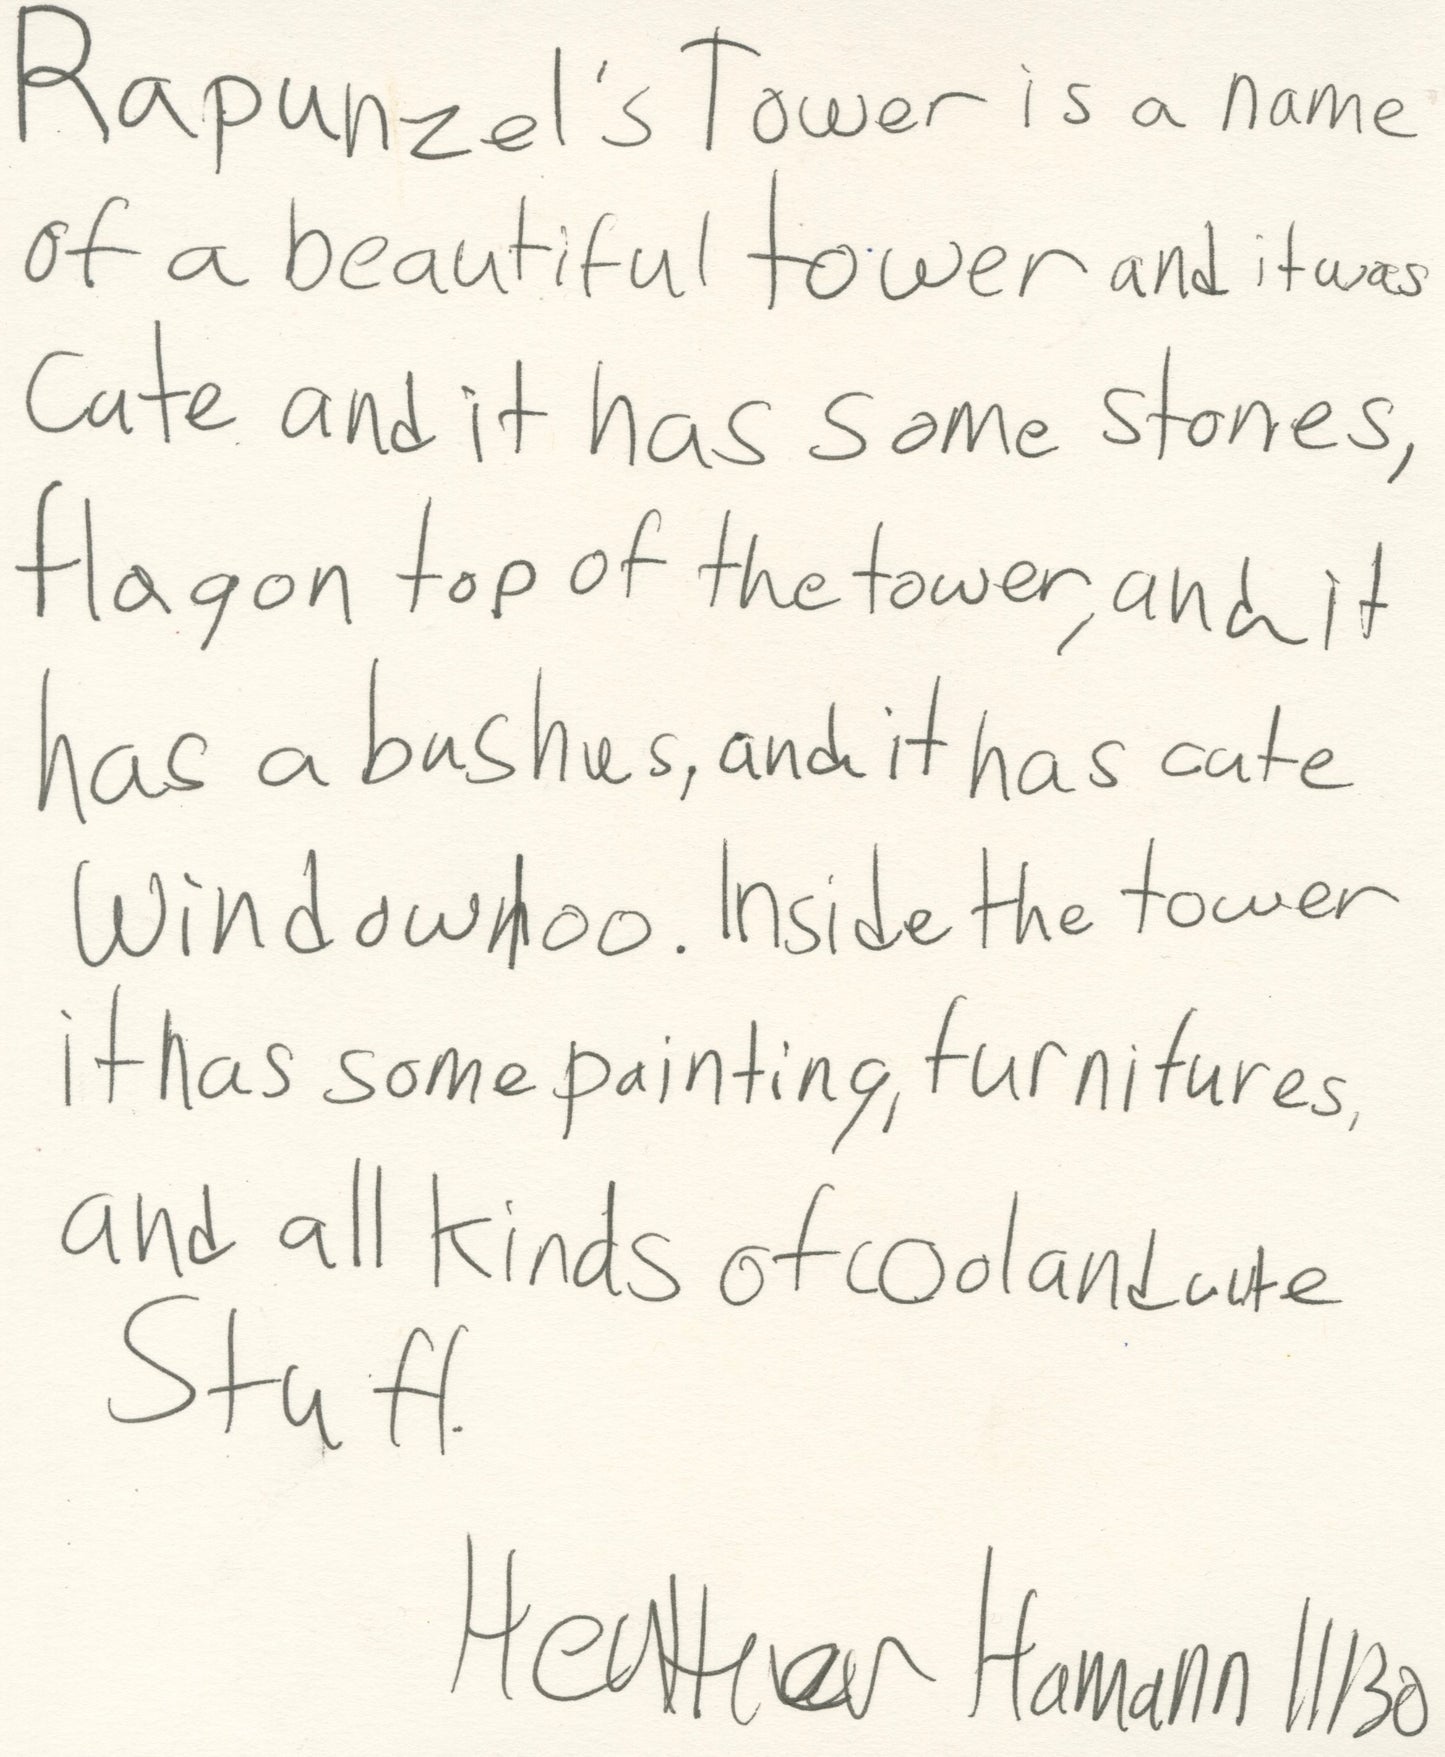 Rapunzel's Tower is a name
of a beautiful tower and it was
Cute and it has some stones,
flag on top of the tower, and it
has a bushes, and it has cute
Window too. Inside the tower
it has some painting, furnitures,
and all kinds of cool and cute
Stuff.
Heather Hamann 11/30